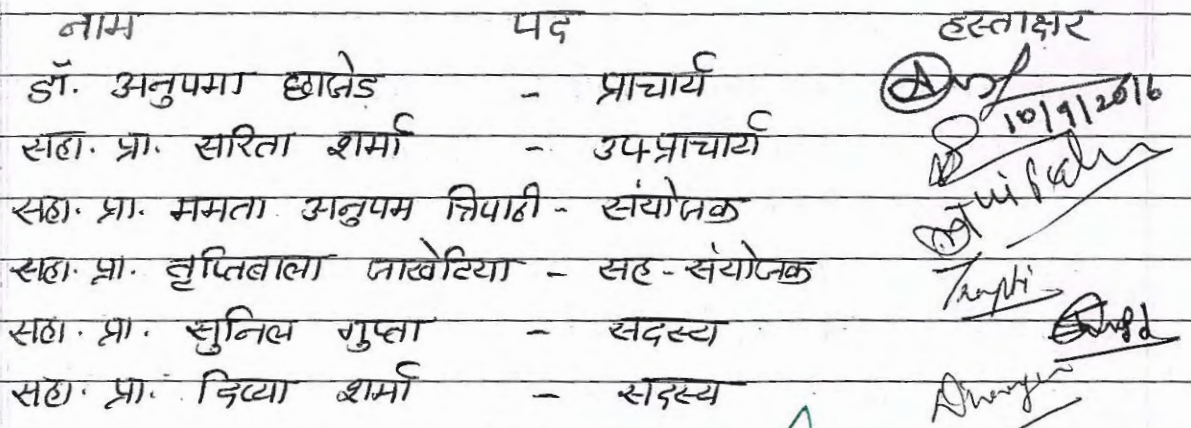 नाम पद हस्ताक्षर
डॉ. अनुपमा छाजेड - प्राचार्य
10/9/2016
सहा. प्रा. सरिता शर्मा - उपप्राचार्य
सहा. प्रा. ममता अनुपम त्रिपाठी - संयोजक
सहा. प्रा. तृप्तिबाला जाखेटिया - सह-संयोजक Trapti
सहा. प्रा. सुनिल गुप्ता - सदस्य
सहा. प्रा. दिव्या शर्मा - सदस्य